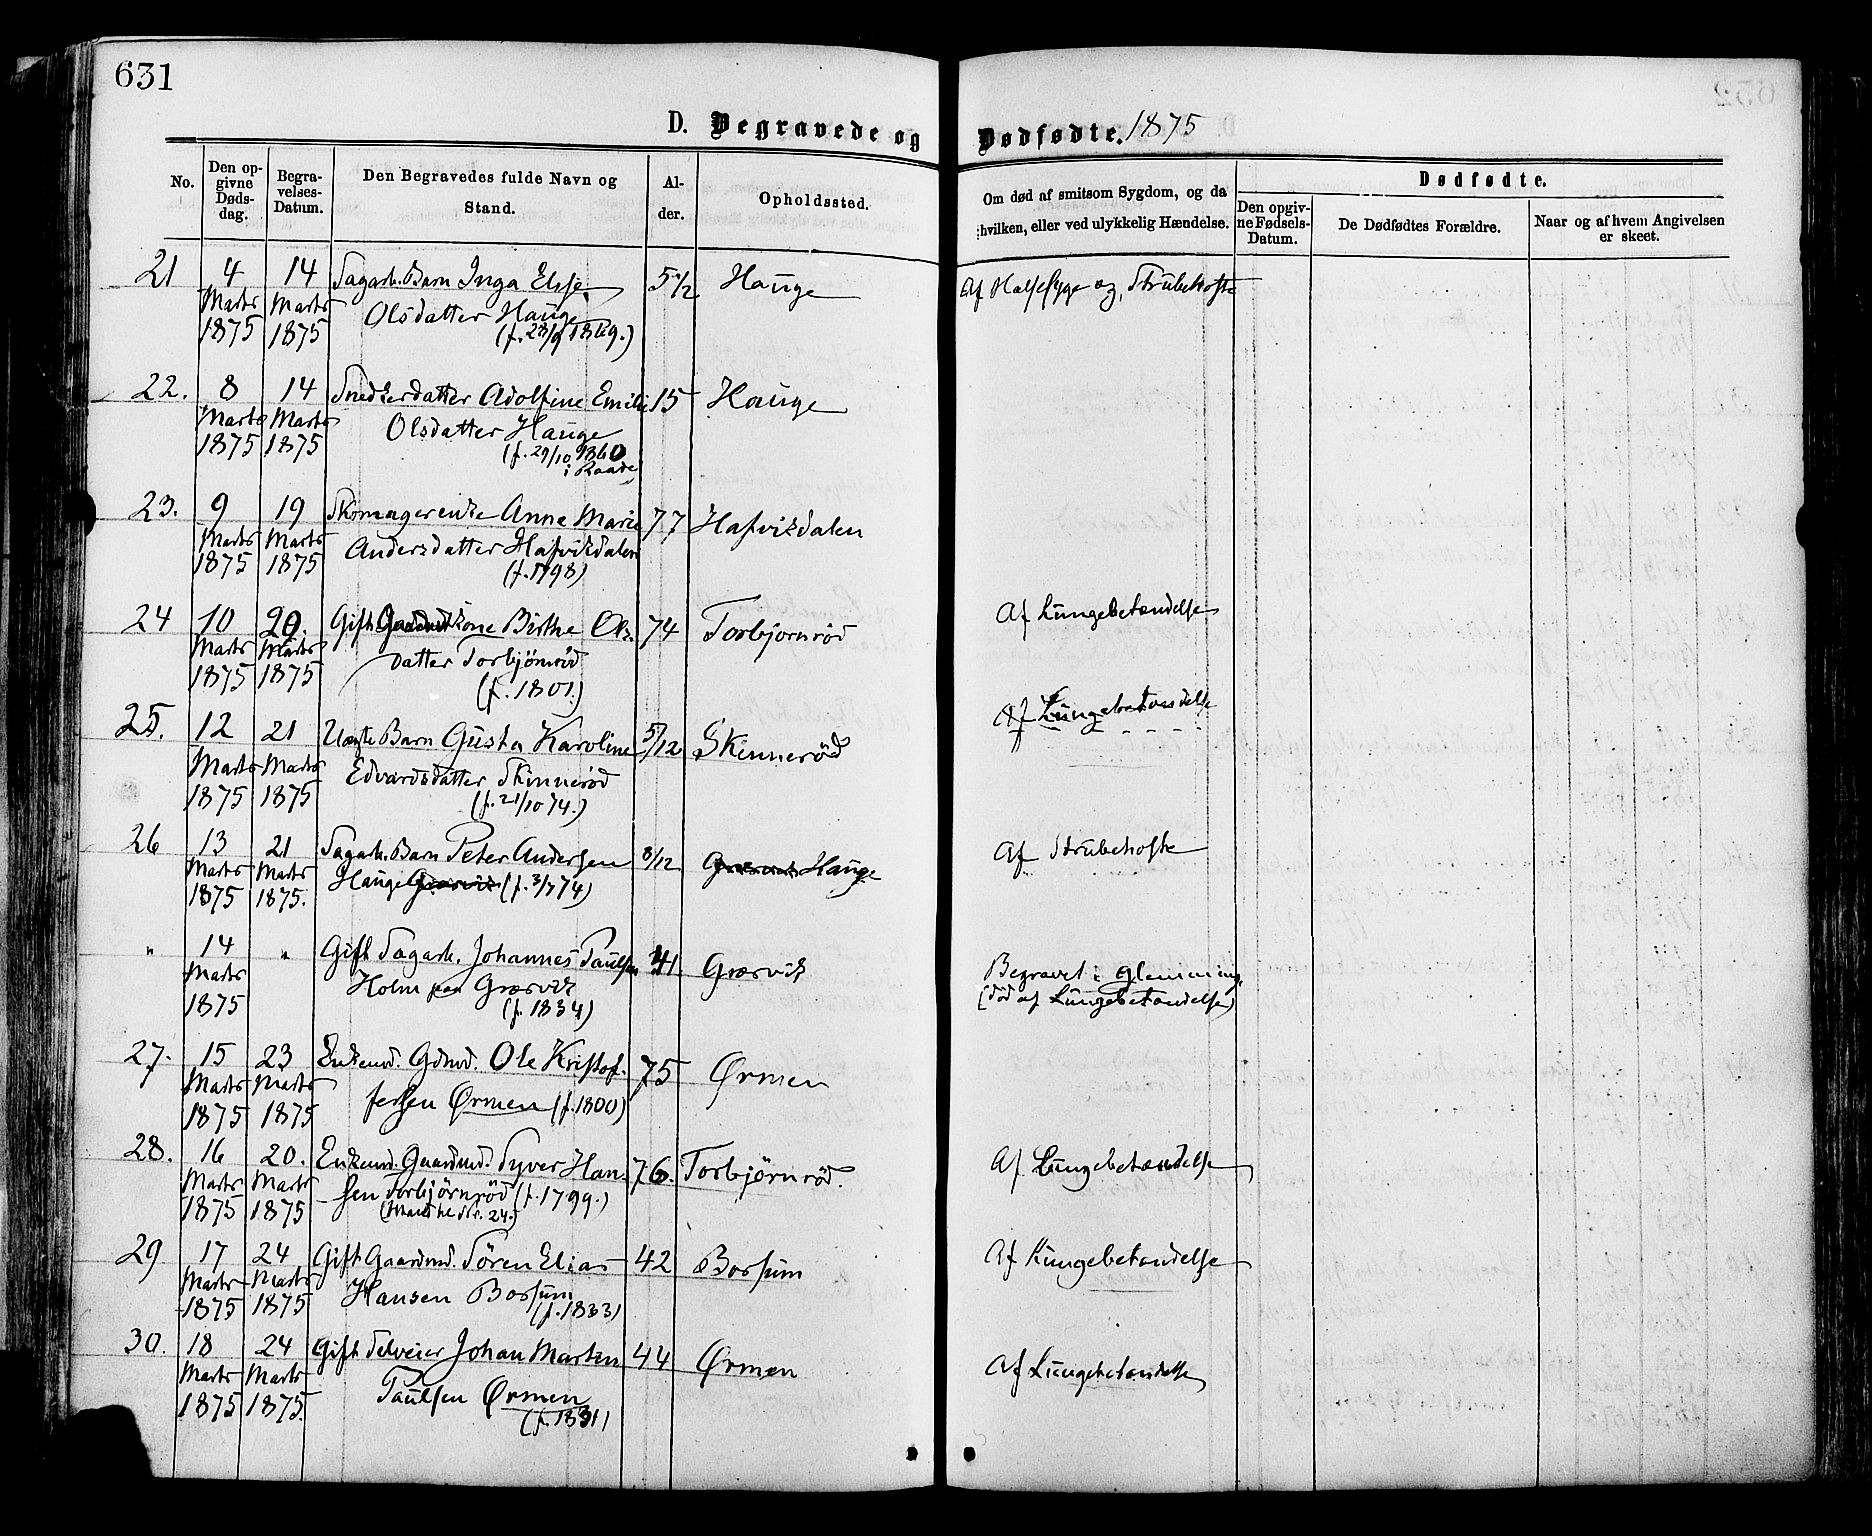 631
D. Begravede og Dødfødte. 1875
No.
Den opgivne Dødsdag.
Begravelses-Datum.
Den Begravedes fulde Navn og Stand.
Alder.
Opholdssted.
Om død af smitsom Sygdom, og da hvilken, eller ved ulykkelig Hændelse.
Dødfødte.
Den opgivne Fødsels-Datum.
De Dødfødtes Forældre.
Naar og af hvem Angivelsen er skeet.
21 4 14 Sagarb. Barn Inga Elise 5 1/2 Hauge Af Halssyge og Strubehoste
Marts Marts Olsdatter Hauge
1875 1875 (f. 28/9 1869.)
22. 8 14 Snedkerdatter Adolfine Emilie 15 Hauge
Marts Marts Olsdatter Hauge
1875 1875 (f. 29/10 1860
i Raade)
23. 9 19 Skomagerenke Anne Marie 77 Hafvikdalen
Marts Marts Andersdatter Hafvikdalen
1875 1875 (f. 1798)
24 10 20. Gift Gaardmdkone Birthe Ols- 74 Torbjornrød Af Lungebetændelse
Marts Marts datter Torbjörnröd
1875 1875 (f. 1801.)
25. 12 21 Uægte Barn Gusta Karoline 5/12 Skinneröd Af Lungebetændelse
Marts Marts Edvardsdatter Skinneröd
1875 1875 (f. 21/10 74.)
26 13 21 Sagarb. Barn Peter Andersen 8/12 Græsvik Hauge Af Strubehoste
Marts Marts Hauge Græsvik (f. 3/7 74)
1875 1875.
" 14 " Gift Sagarb. Johannes Paulsen 41 Græsvik Begravet i Glemminge
Marts Holm paa Græsvik (död af Lungebetændelse)
1875 (f. 1834)
27. 15 23 Enkemd. Gdmd. Ole Kristof- 75 Ørmen
Marts Marts fersen Ørmen (f. 1800)
1875 1875
28. 16 20. Enkemd. Gaardmd. Syver Han- 76. Torbjörnröd. Af Lungebetændelse
Marts Marts sen Torbjörnröd (f. 1799.)
1875 1875 (Mand til No. 24.)
29 17 24 Gift Gaardmd. Sören Elias 42 Borsum Af Lungebetændelse
Marts Marts Hansen Borsum
1875 1875 (f. 1833)
30. 18 24 Gift Selveier Johan Martin 44 Ørmen Af Lungebetændelse
Marts Marts Paulsen Ørmen
1875 1875 (f. 1831)